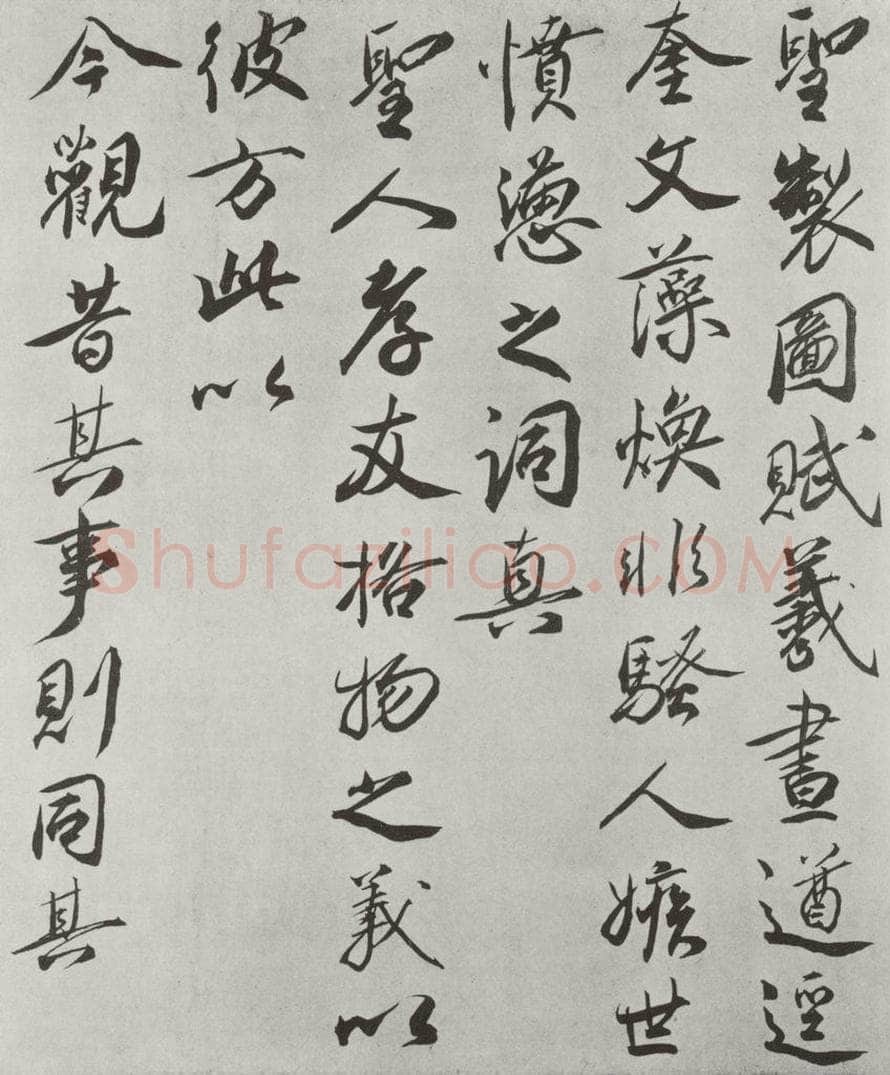 聖製圖賦羲畫遒逕
奎文藻煥非騷人嫉世
憤懣之詞真
聖人孝友格物之義以
彼方此以
今觀昔其事則同其
Shufaziliao.COM